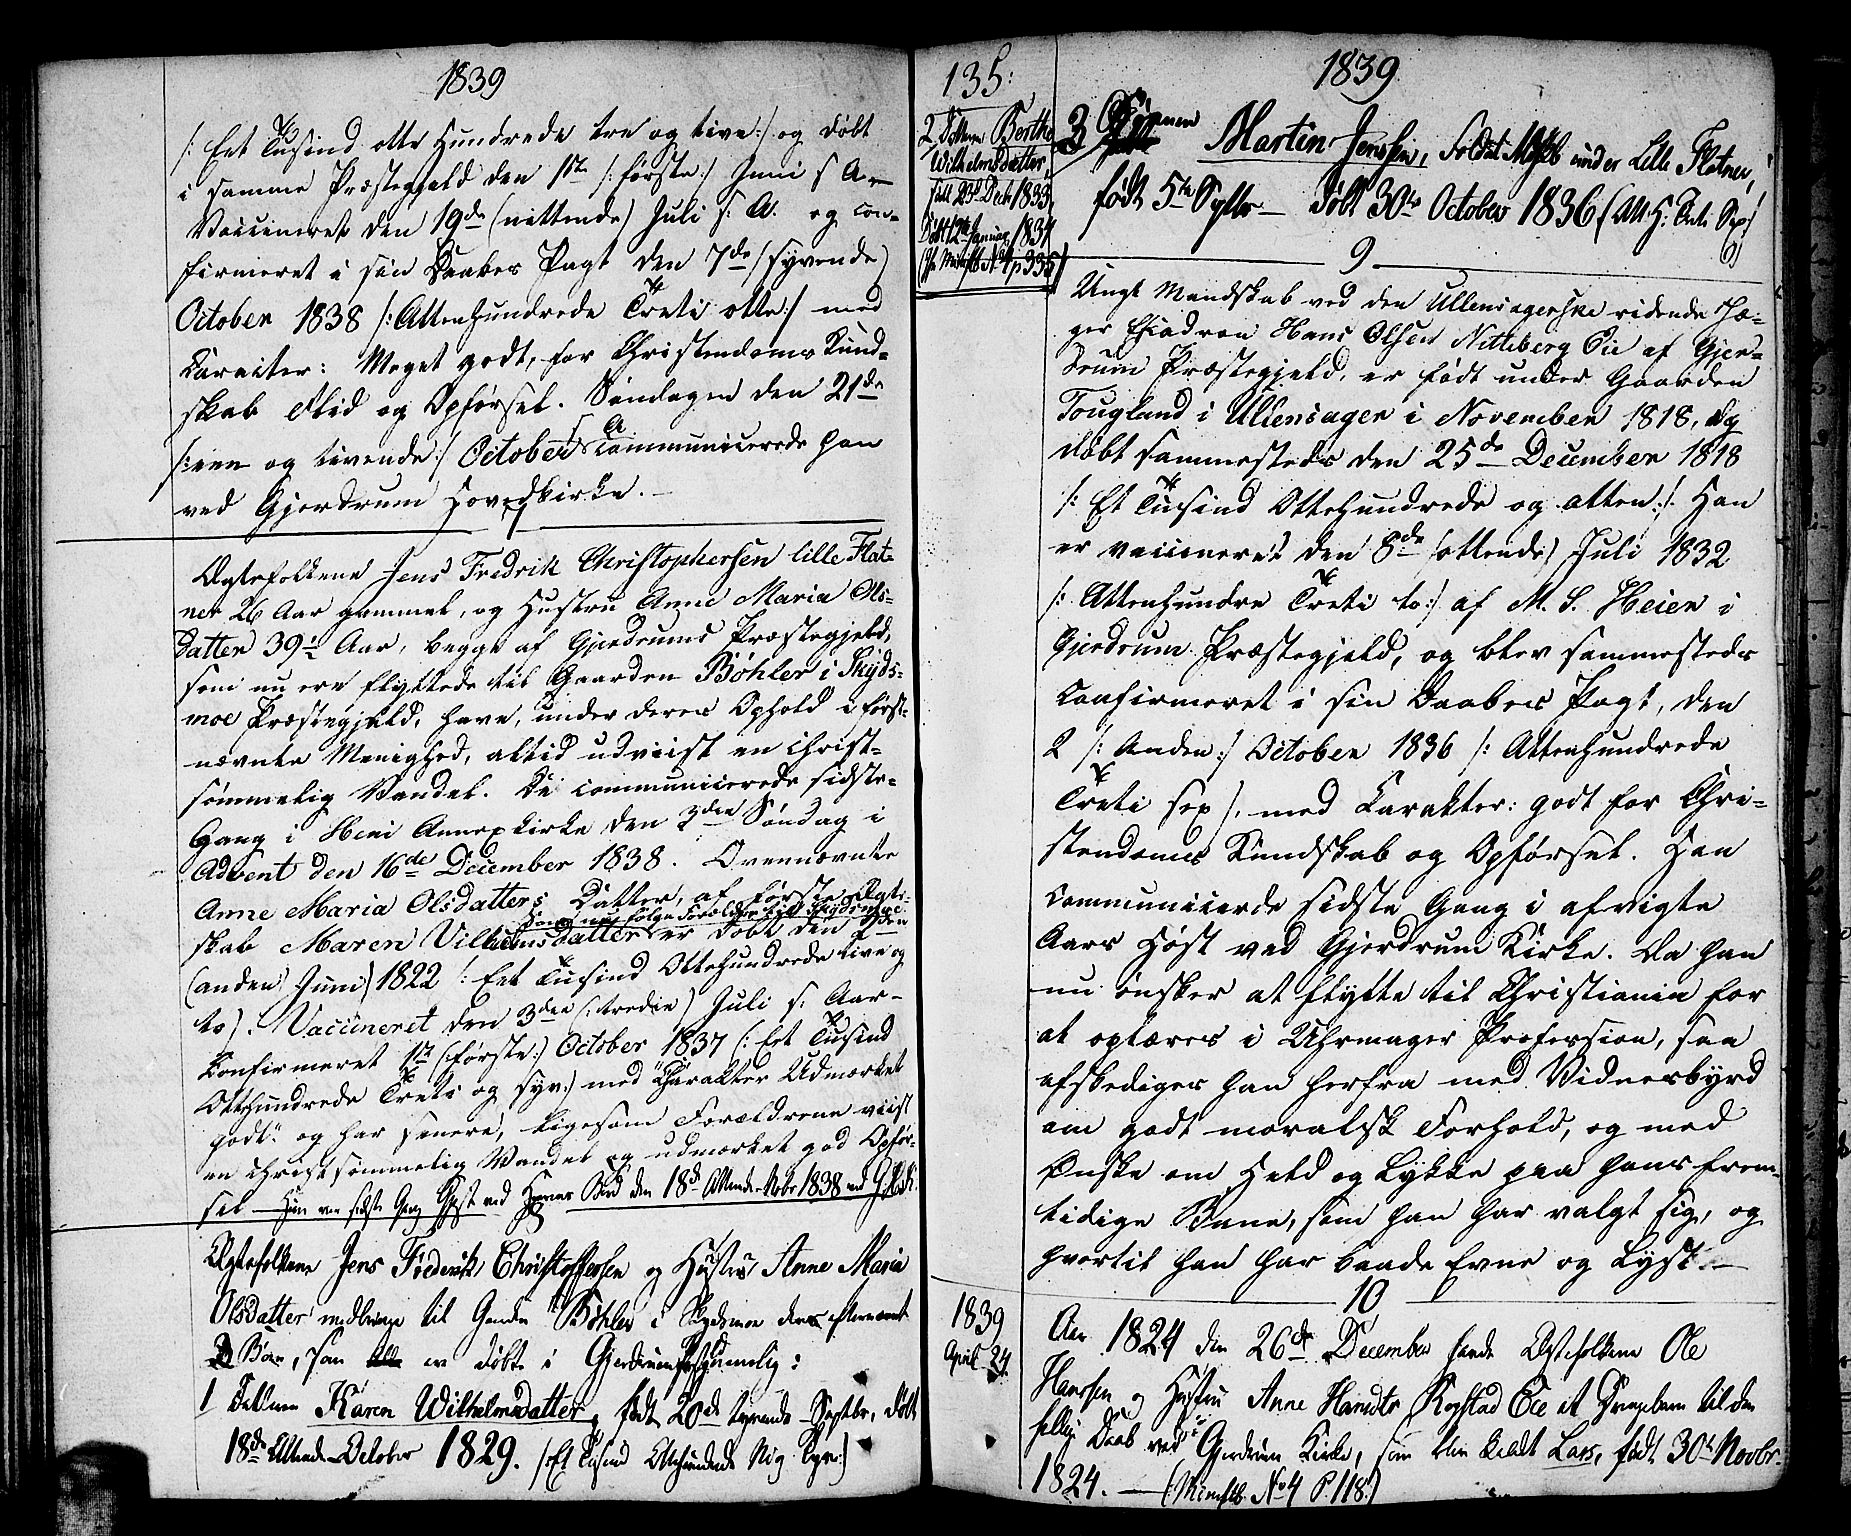 1839
/: Eet Tusind otte Hundrede tre og tive :/ og døbt
i samme Præstegjeld den 1ste /: første :/ Juni s A –
Vaccineret den 19de (nittende) Juli s. A. og con-
firmeret i sin Daabes Pagt den 7de /syvende/
October 1838 /: Attenhundrede Treti otte :/ med
Caracter: Meget godt, for Christendoms Kund-
skab Flid og Opførsel. Søndagen den 21de
/: een og tivende :/ October s A communicerede han
ved Gjerdrum Hovedkirke. –
Ægtefolkene Jens Fredrik Christophersen lille Flat-
ner 26 Aar gammel, og Hustru Anne Maria Ols-
datter 39½ Aar, begge af Gjerdrums Præstegjeld,
som nu ere flyttede til Gaarden Bøhler i Skyds-
moe Præstegjeld, have, under deres Ophold i først-
nævnte Menighed, altid udviist en christ-
sømmelig Vandel. De communicerede sidste-
Gang i Heni Annexkirke den 3die Søndag i
Advent den 16de December 1838. Ovennævnte
Anne Maria Olsdatters Datter, af første Ægte-
som nu følge Forældre til Skydsmoe
skab Maren Vilhelmsdatter er døbt den 2den
(anden) Juni) 1822 /: Eet Tusind Ottehundrede tive og
to). Vaccineret den 3die (: tredie) Juli s. Aar –
Confirmeret 1ste (første:) October 1837 (: Eet Tusind
Ottehundrede Treti og syv:) med "Charakter Udmærket
godt" og har senere, ligesom Forældrene viist
en christsømmelig Vandel og udmærket god Opfør-
sel – Hun var sidste Gang Gjest ved Herrens Bord den 18de Attende Novbr 1838 ved G. H. K.
Ægtefolkene Jens Frederik Christoffersen og Hustru Anne Maria
Olsdatter medbringe til Gaarden Bøhler i Skydsmoe deres efternævnte
3 Børn, som ere døbte i Gjerdrum nemlig:
1 Datteren Karen Wilhelmsdatter, født 20de tyvende Septbr, døbt
18de Attende October 1829. /: Et Tusind Attehundrede Nig Tyve:)
135:
2. Datteren Berthe
Wilhelmsdatter,
født 23de Decbr 1833.
Døbt 12te Januar 1834
(Se Ministb No 4 p 335)
1839
3 Sønnen Martin Jenssen, Soldat under Lille Flatner,
født 5te Septbr – døbt 30te October 1836 (Att. H. Treti Sex)
9
Ungt Mandskab ved den Ullensagerske ridende Jæ-
ger Escadron Hans Olsen Nitteberg Eie af Gjer-
drum Præstegjeld, er født under Gaarden
Tougland i Ullensager i November 1818, og
døbt sammesteds den 25de December 1818
/: Et Tusind Ottehundrede og atten :/. Han
er vaccineret den 8de (ottende) Juli 1832
/: Attenhundre Treti to:) af M. S. Heien i
Gjerdrum Præstegjeld, og blev sammesteds
confirmeret i sin Daabes Pagt, den
2 /: Anden :/ October 1836 /: Attenhundrede
Treti sex), med Karakter: godt for Chri-
stendoms Kundskab og Opførsel. Han
communicerde sidste Gang i afvigte
Aars Høst ved Gjerdrum Kirke. Da han
nu ønsker at flytte til Christiania for
at oplæres i Uhrmager Profession, saa
afskediges han herfra med Vidnesbyrd
om godt moralsk Forhold, og med
Ønske om Held og Lykke paa hans frem-
tidige Bane, som han har valgt sig, og
hvortil han har baade Evne og Lyst. –
10
1839
April 24.
Aar 1824 den 26de December havde Ægtefolkene Ole
Hanssen og Hustru Anne Hansdtr Rogstad Eie et Drengebarn til den
hellige Daab ved Gjerdrum Kirke, som blev kaldt Lars, født 30te Novbr.
1824. – (Ministb. No 4 P. 118.)